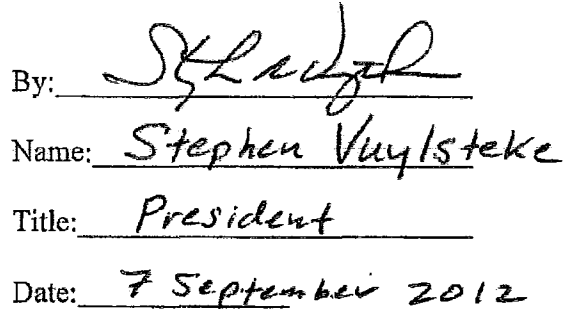 By:
Name: Stephen Vuylsteke
Title: President
Date: 7 September 2012